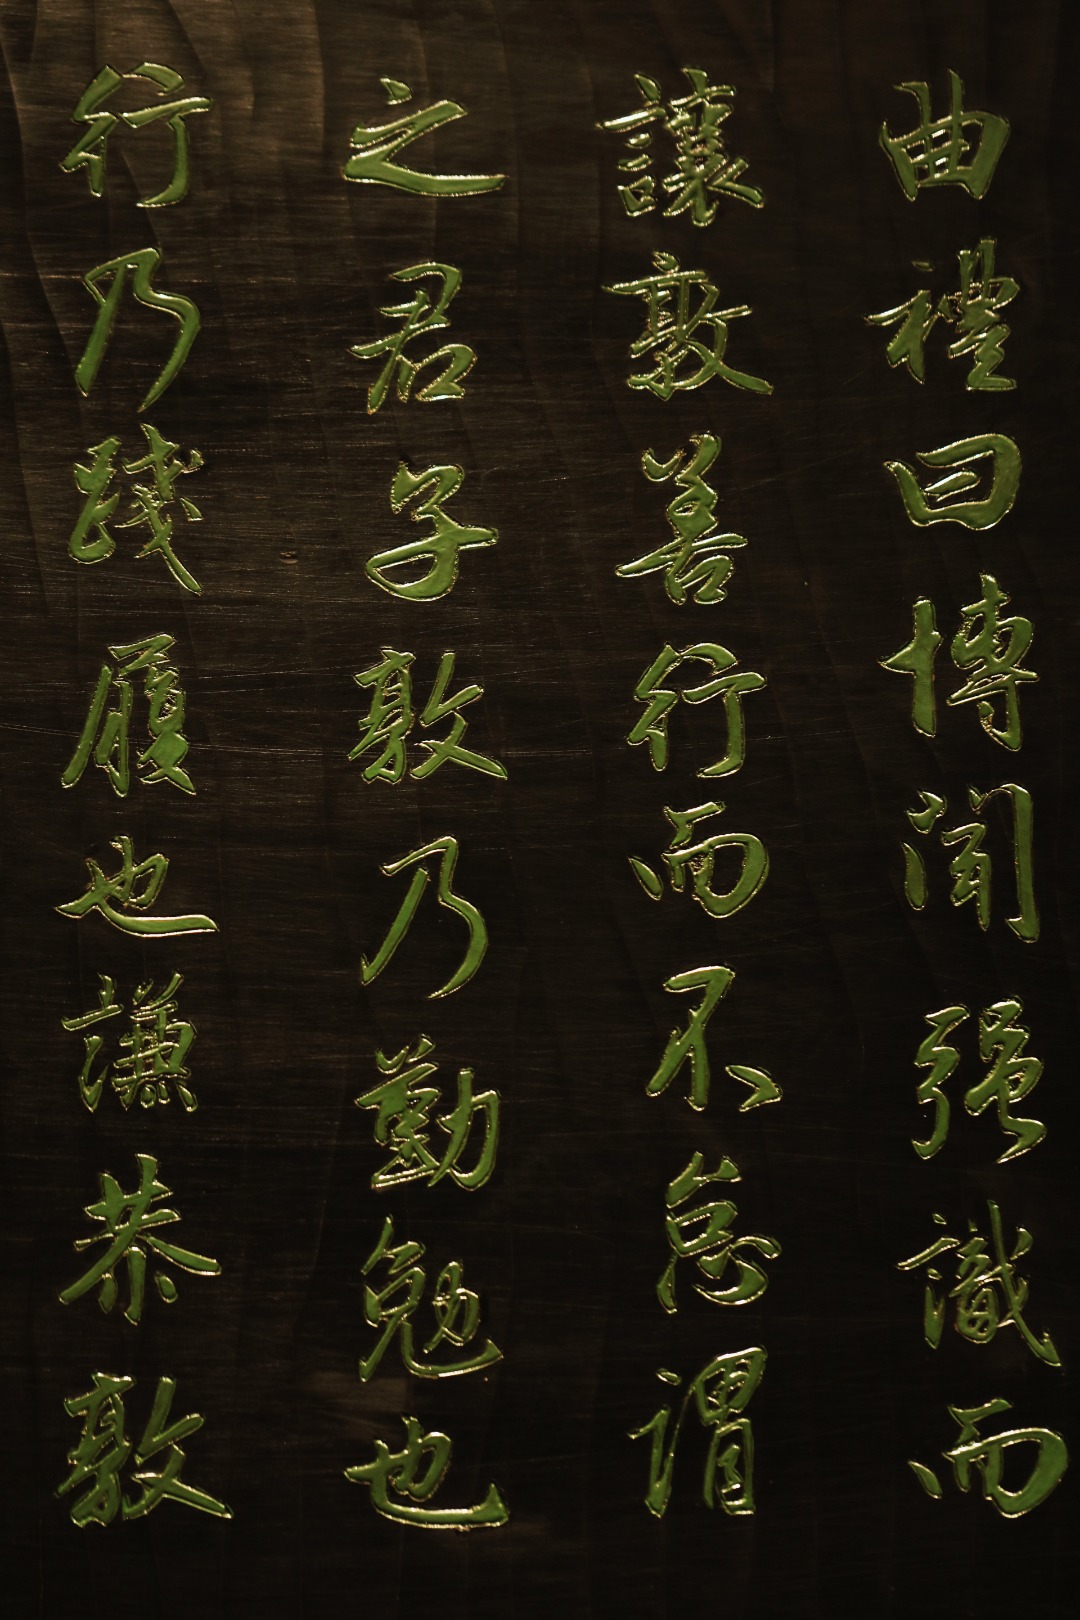 曲禮曰博聞强識而
讓敦善行而不怠謂
之君子敦乃勤勉也
行乃踐履也謙恭敦